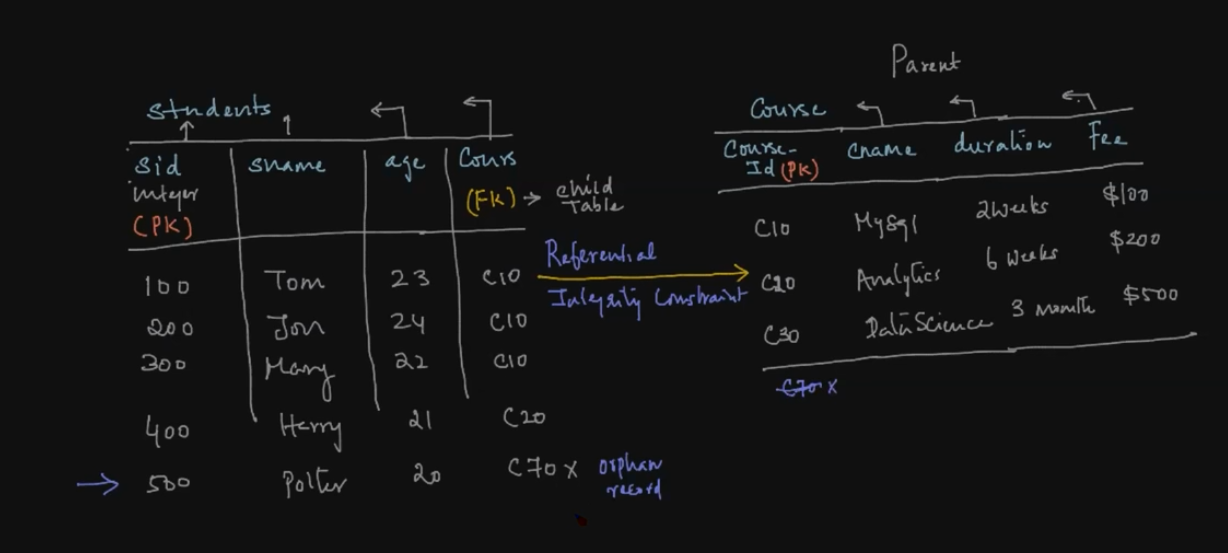 Students
Sid
integer
(PK)
sname
age
Cours
(FK) → child
Table
100 Tom 23 C10
200 Jon 24 C10
300 Mary 22 C10
400 Harry 21 C20
500 Potter 20 C70 x orphan
record
Referential
Integrity Constraint
Parent
Course
Course-
Id (PK)
cname
duration
Fee
C10 MySql 2 weeks $100
C20 Analytics 6 weeks $200
C30 DataScience 3 month $500
C70 x